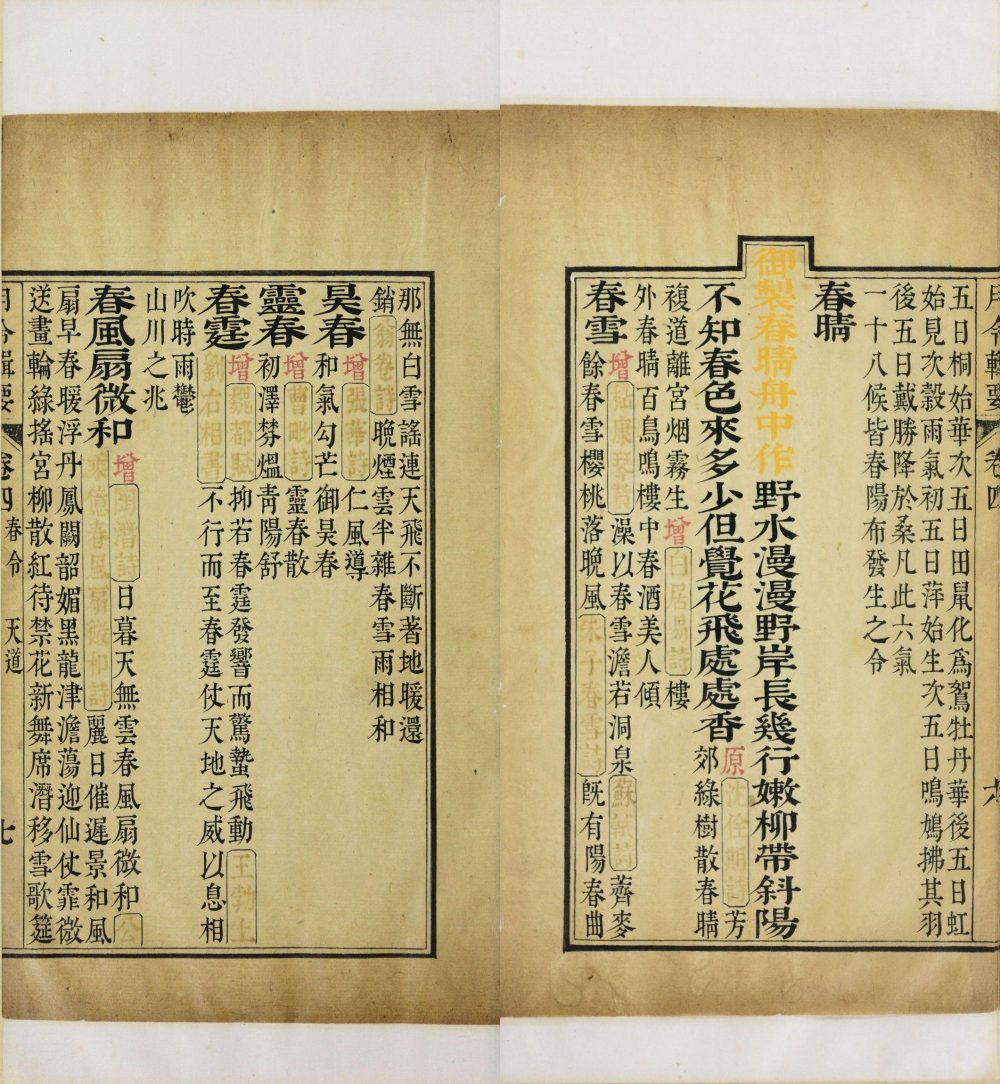 月令輯要 卷四 六
五日桐始華次五日田鼠化為鴽牡丹華後五日虹
始見次穀雨氣初五日萍始生次五日鳴鳩拂其羽
後五日戴勝降於桑凡此六氣
一十八候皆春陽布發生之令
春晴
御製春晴舟中作 野水漫漫野岸長幾行嫩柳帶斜陽
不知春色來多少但覺花飛處處香
原沈佺期詩芳
郊綠樹散春晴
複道離宮烟霧生增白居易詩樓
外春晴百鳥鳴樓中春酒美人傾
春雪
增嵇康琴賦澡以春雪澹若洞泉蘇軾詩薺麥
餘春雪櫻桃落晚風朱子春雪詩旣有陽春曲
那無白雪謠連天飛不斷著地暖還
銷翁卷詩晚煙雲半雜春雪雨相和
昊春
增張華詩仁風導
和氣勾芒御昊春
靈春
增曹毗詩靈春散
初澤棼熅青陽舒
春霆
增魏都賦抑若春霆發響而驚蟄飛動王勃上
劉右相書不行而至春霆仗天地之威以息相
吹時雨鬱
山川之兆
春風扇微和
增陶潛詩日暮天無雲春風扇微和公
乘億春風扇微和詩麗日催遲景和風
扇早春暖浮丹鳳闕韶媚黑龍津澹蕩迎仙仗霏微
送畫輪綠搖宮柳散紅待禁花新舞席潛移雪歌筵
月令輯要 卷四 春令 天道 七